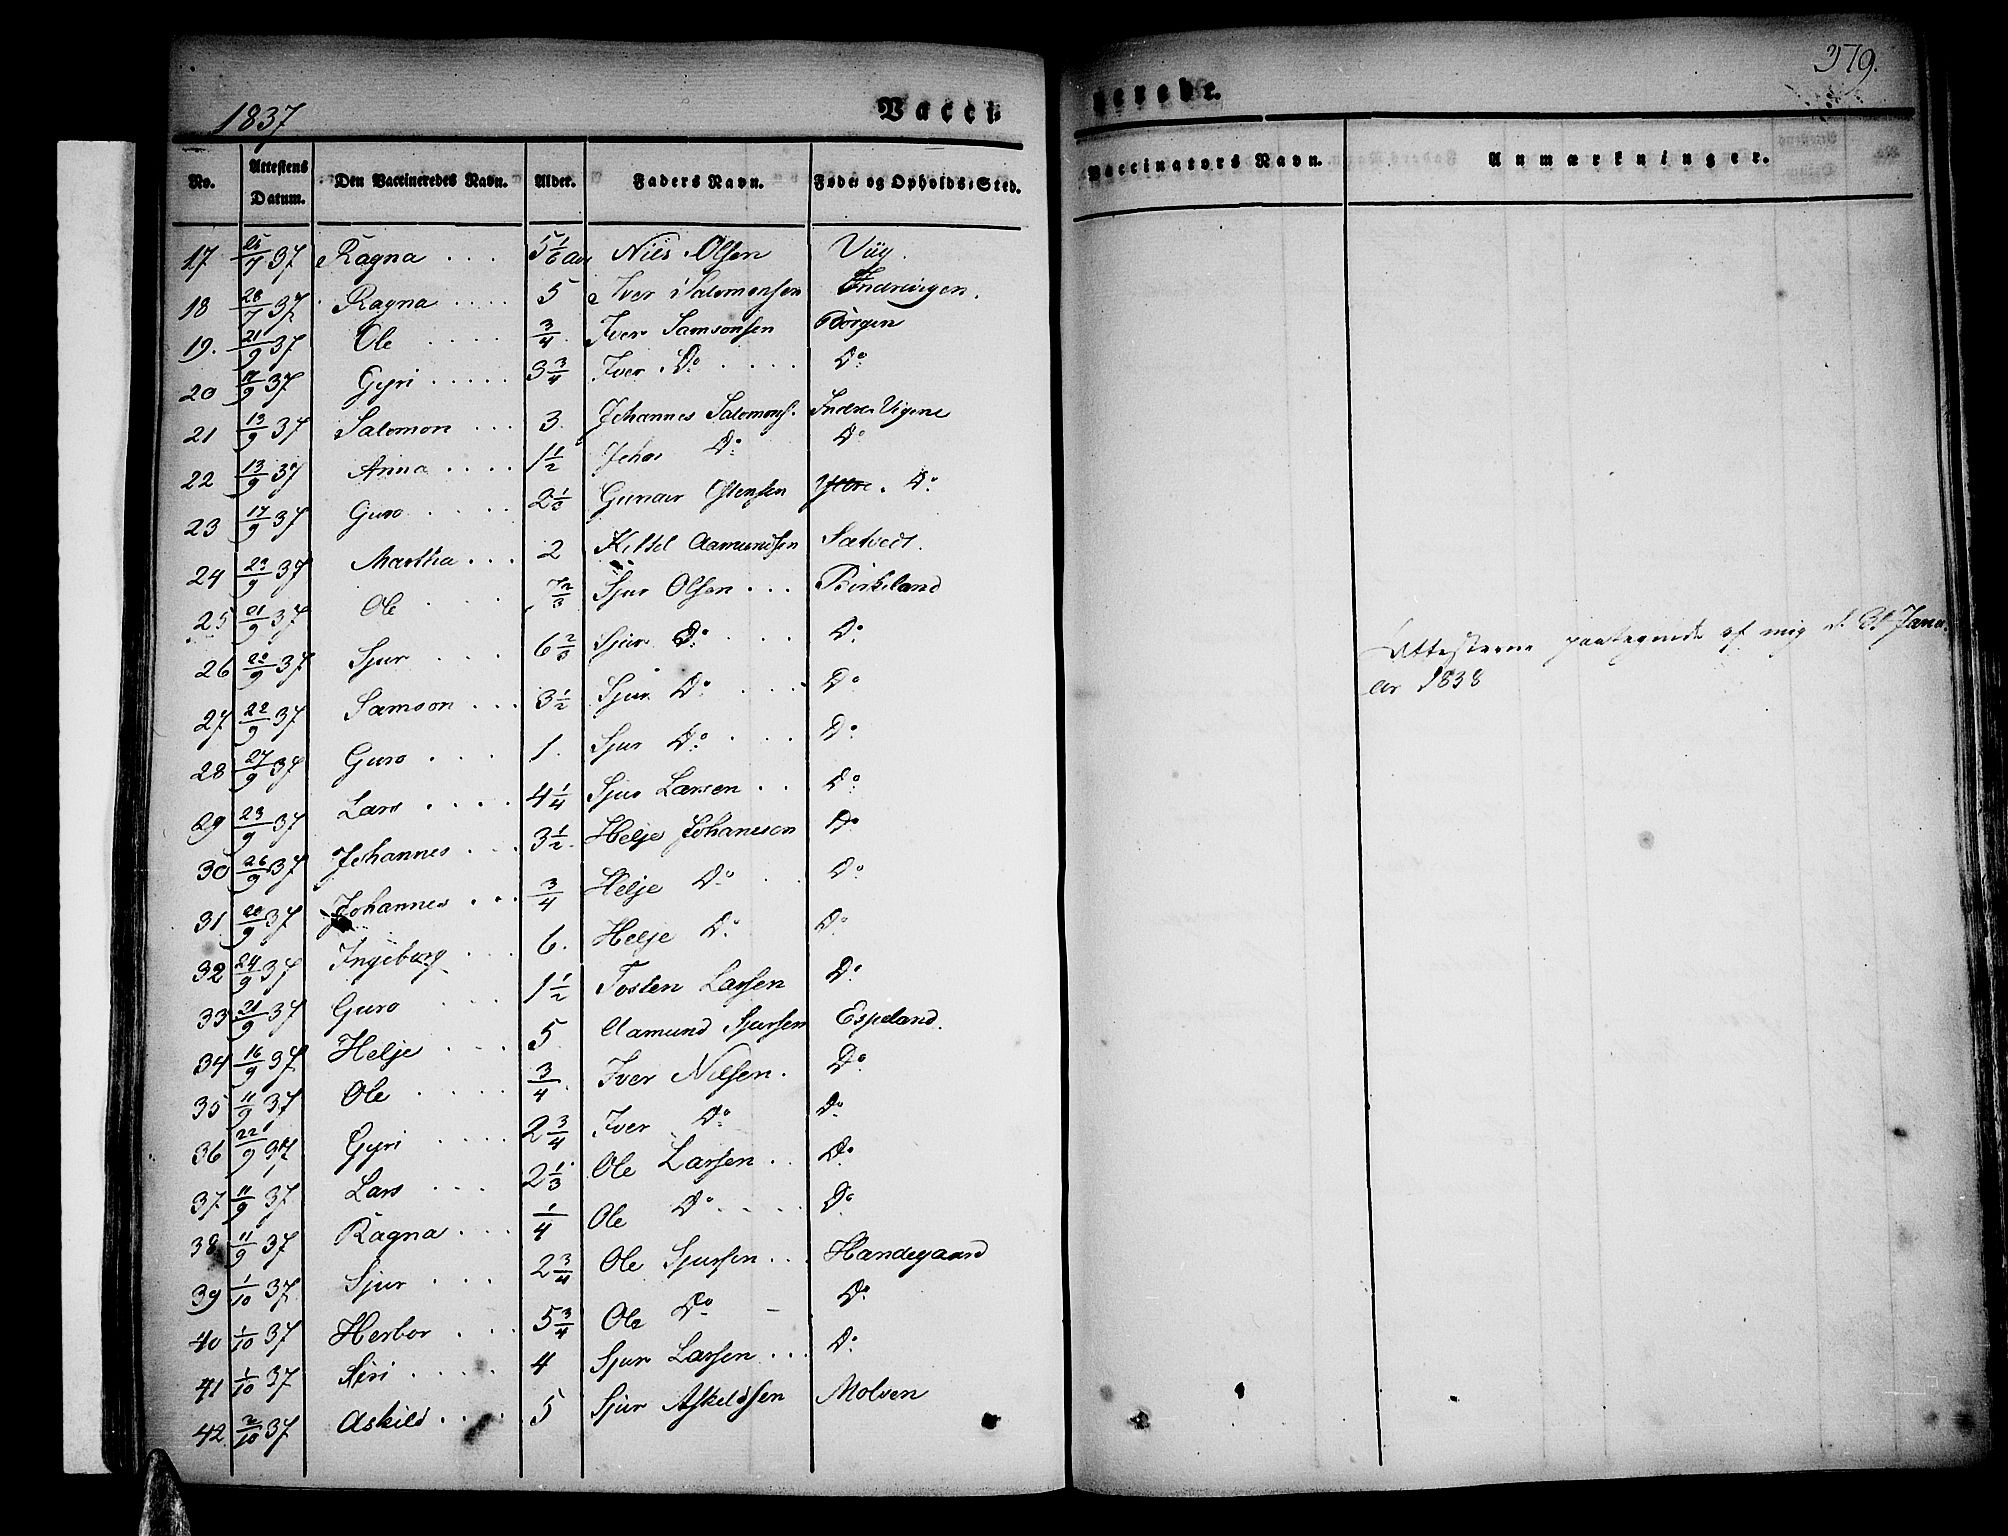 1837
Vacci-
No. Attestens Datum. Den Vaccineredes Navn. Alder. Faders Navn. Føde- og Opholds-Sted.
17 25/7 37 Ragna . . . 5 1/6 aar Niels Olsen
18 28/7 37 Ragna . . . . 5 Iver Salomonsen
19. 21/9 37 Ole . . . . 3/4 Iver Samsonsen Børgen
20 18/9 37 Gyri . . . . . 3 3/4 Iver Do . . . . . Do
21 13/9 37 Salomon . . . 3. Johannes Salomons. Indre Vigene
22 13/9 37 Anna . . . . 1 1/2 Johas Do Do
23 17/9 37 Guro . . . . 2 1/3 Gunder Ostensen Ytre. Do
24 23/9 37 Martha . . . 2 Kittel Aamundsen Sætvedt.
25 21/9 37 Ole . . 7 2/3 Sjur Olsen . . . Birkeland
26 20/9 37 Sjur . . . 6 2/3 Sjur Do . . . . Do
27 22/9 37 Samson . . . 3 1/2 Sjur Do . . . Do
28 27/9 37 Guro . . . 1. Sjur Do . . . . Do
29 23/9 37 Lars . . . . 4 1/4 Sjur Larsen . . Do
30 26/9 37 Johannes . . . 3 1/2 Helje Johanesen Do
31 20/9 37 Johannes . . . 3/4 Helje Do . . Do
32 24/9 37 Ingeborg . . . 6. Helje Do Do
33 21/9 37 Guro . . . 1 1/2 Tosten Larsen Do
34 16/9 37 Helje . . . 5 Aamund Sjursen Espeland.
35 11/9 37 Ole . . . . 3/4 Iver Nilsen. Do
36 22/9 37 Gyri . . . . 2 3/4 Iver Do Do
37. 11/9 37 Lars . . . 2 1/3 Ole Larsen . . Do
38 11/9 37 Ragna . . . 1/4 Ole Do . . . . Do
39 1/10 37. Sjur . . . 2 3/4 Ole Sjursen . . . Handegaard
40 1/10 37 Herbor . . . 5 3/4 Ole Do - Do
41 1/10 37 Siri . . . . . 4 Sjur Larsen . . . Do
42 2/10 37 Askild . . . . 5 Sjur Askeldsen Molven
379.
nerede.
Vaccinators Navn. Anmærkninger.
Attesterne paategnede af mig d. 31 Janu-
ar 1838